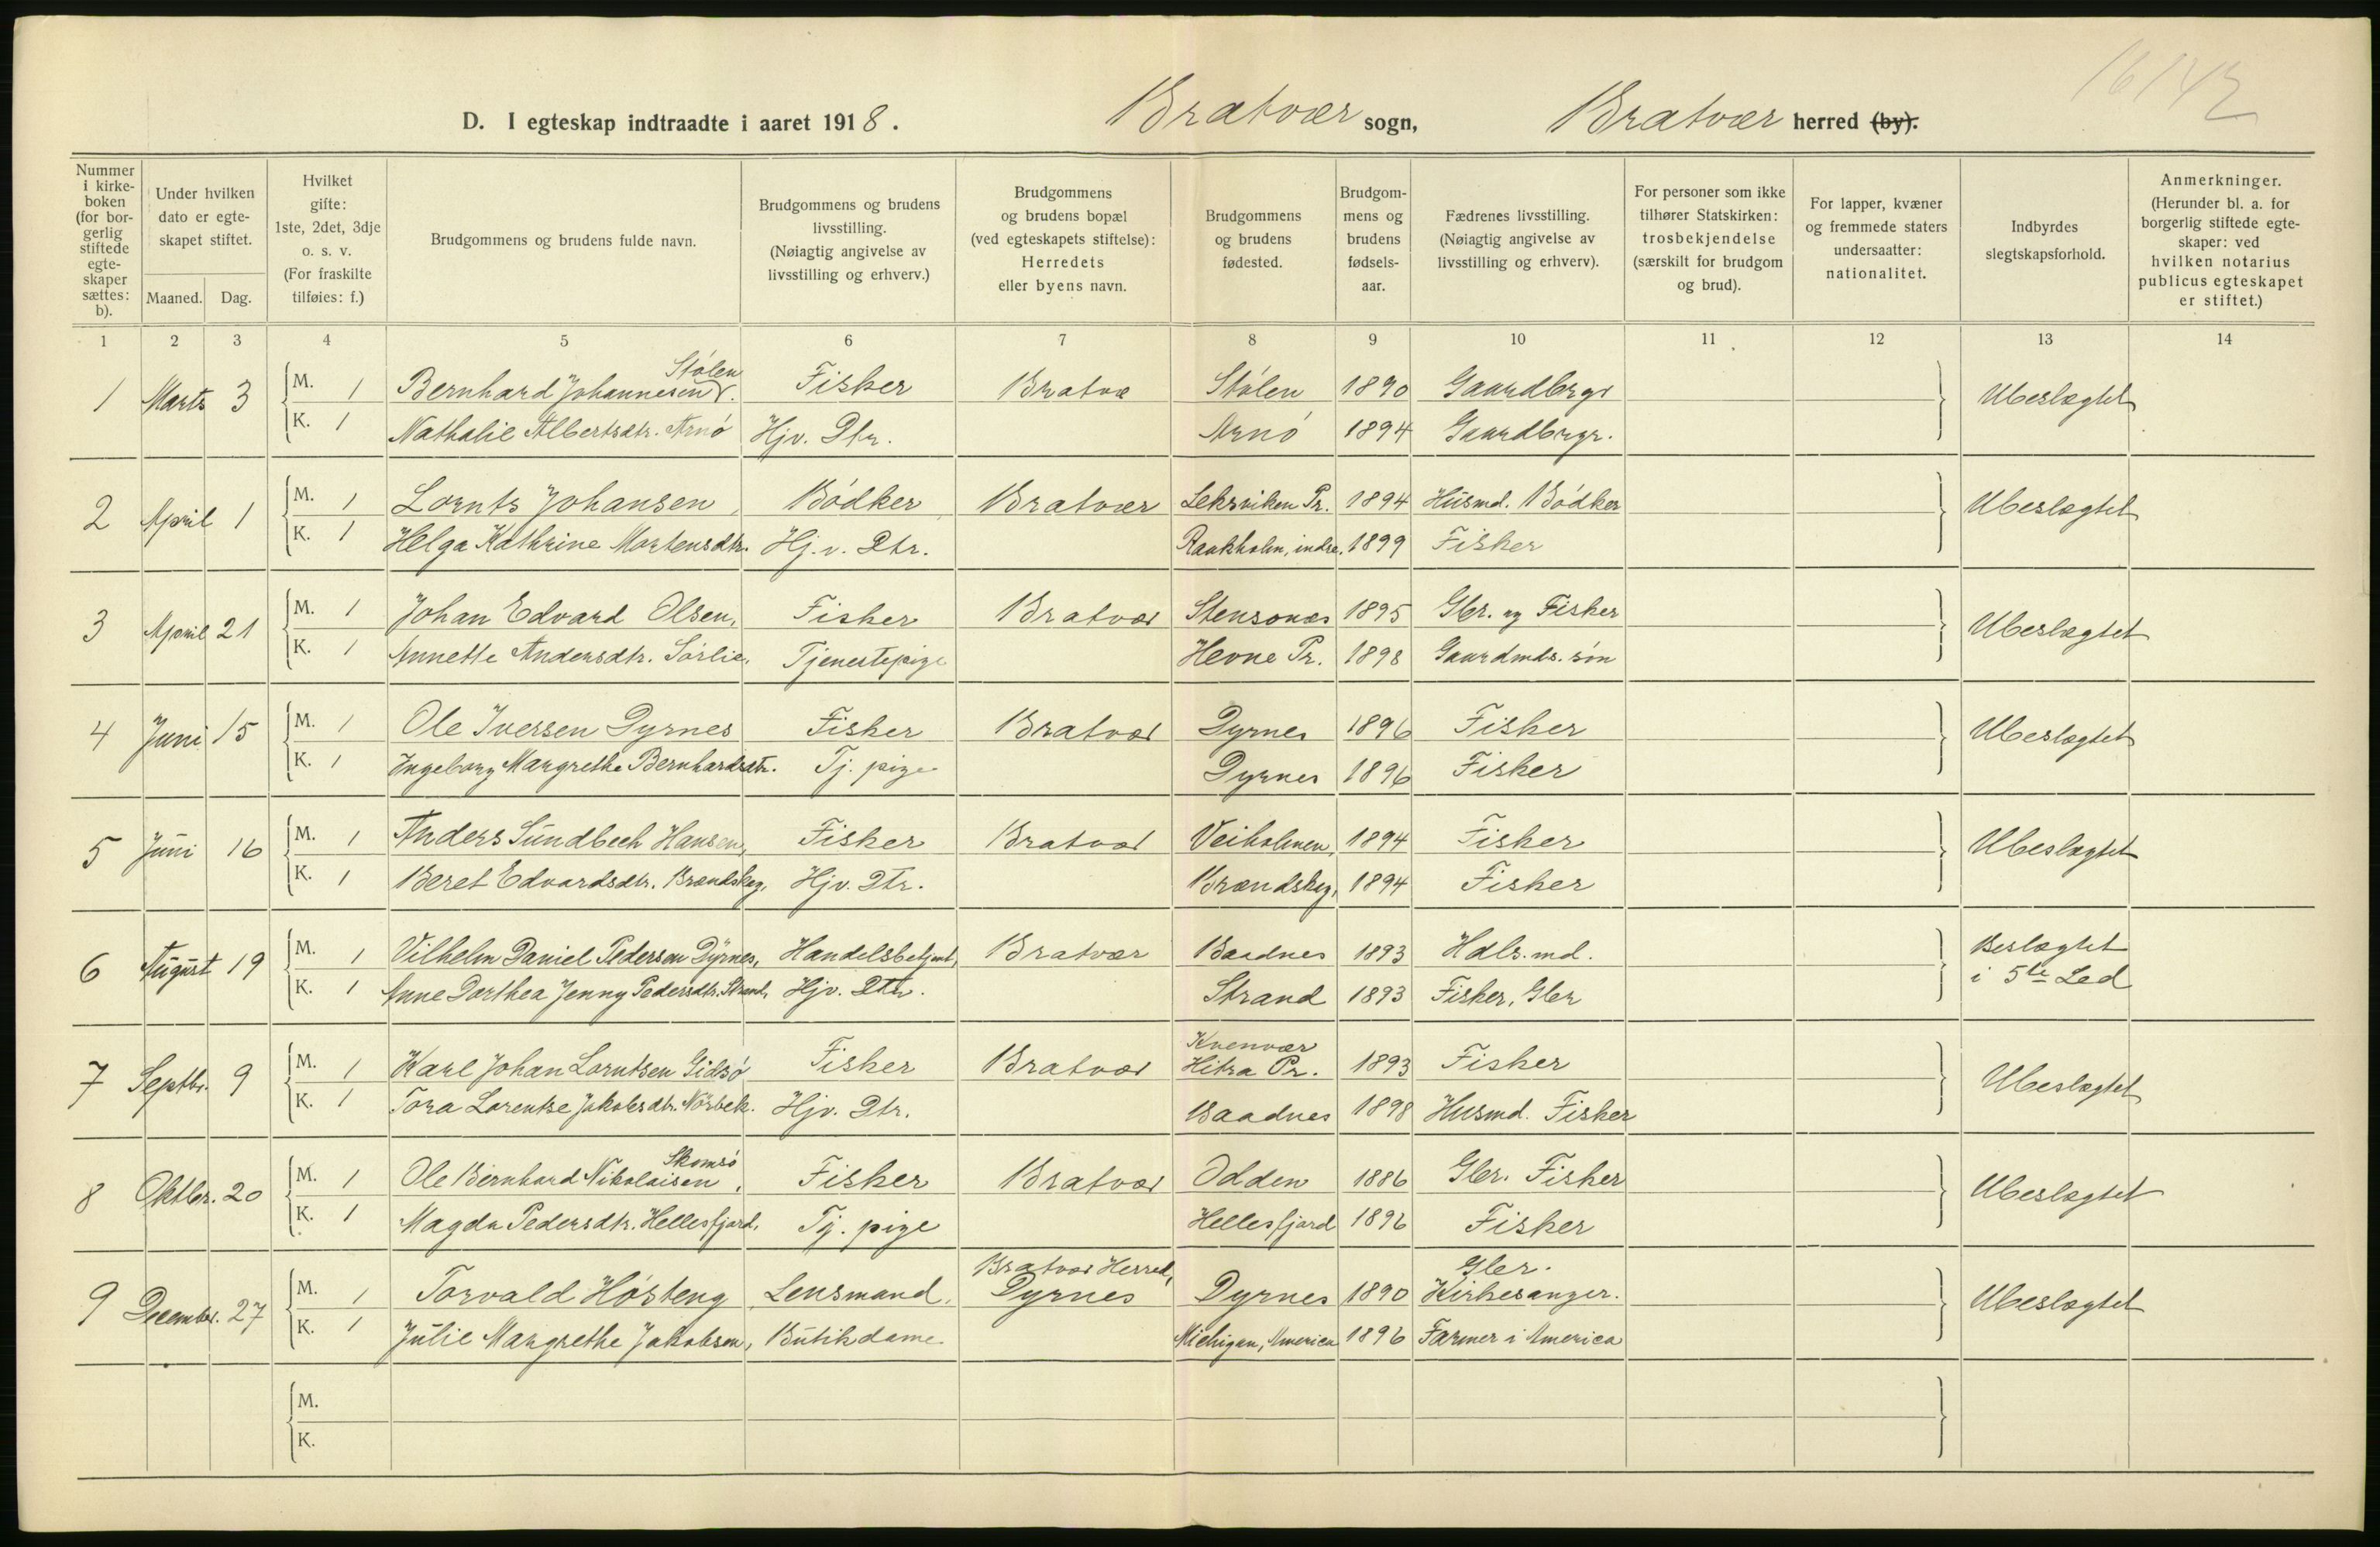 16142
D. I egteskap indtraadte i aaret 1918. Bratvær sogn, Bratvær herred (by).
Nummer i kirke-boken (for bor-gerlig stiftede egte-skaper sættes: b).
Under hvilken dato er egte-skapet stiftet.
Maaned. Dag.
Hvilket gifte: 1ste, 2det, 3dje o. s. v. (For fraskilte tilføies: f.)
Brudgommens og brudens fulde navn.
Brudgommens og brudens livsstilling. (Nøiagtig angivelse av livsstilling og erhverv.)
Brudgommens og brudens bopæl (ved egteskapets stiftelse): Herredets eller byens navn.
Brudgommens og brudens fødested.
Brudgom-mens og brudens fødsels-aar.
Fædrenes livsstilling. (Nøiagtig angivelse av livsstilling og erhverv).
For personer som ikke tilhører Statskirken: trosbekjendelse (særskilt for brudgom og brud).
For lapper, kvæner og fremmede staters undersaatter: nationalitet.
Indbyrdes slegtskapsforhold.
Anmerkninger. (Herunder bl. a. for borgerlig stiftede egte-skaper: ved hvilken notarius publicus egteskapet er stiftet.)
1 2 3 4 5 6 7 8 9 10 11 12 13 14
1 Marts 3 M. 1 Bernhard Johannesen Stölen. Fisker Bratvæ Stölen 1890 Gaardbrgr Ubeslægtet
K. 1 Nathalie Albertsdtr. Arnö Hjv. Dtr. Arnö 1894 Gaardbrgr.
2 April 1 M. 1 Lornts Johansen, Bödker Bratvær Leksviken Pr. 1894 Husmd. Bödker Ubeslægtet
K. 1 Helga Kathrine Mortensdtr. Hj. v. Dtr. Raakholm, indre. 1899 Fisker
3 April 21 M. 1 Johan Edvard Olsen, Fisker Bratvær Stensönes 1895 Gbr. og Fisker Ubeslægtet
K. 1 Annette Andersdtr. Sörlie, Tjenestepige Hevne Pr. 1898 Gaardmds. sön
4 Juni 15 M. 1 Ole Iversen Dyrnes Fisker Bratvær Dyrnes 1896 Fisker Ubeslægtet
K. 1 Ingeborg Margrethe Bernhardsdtr. Tj. pige Dyrnes 1896 Fisker
5 Juni 16 M. 1 Anders Sundbech Hansen, Fisker Bratvær Veiholmen, 1894 Fisker Ubeslægtet
K. 1 Beret Edvardsdtr. Brændskag, Hjv. Dtr. Brændskag, 1894 Fisker
6 August 19 M. 1 Vilhelm Daniel Pedersen Dyrnes, Handelsbetjent, Bratvær Baadnes 1893 Hdls. md. Beslægtet
K. 1 Anne Dorthea Jenny Pedersdtr. Strand, Hjv. Dtr. Strand 1893 Fisker, Gbr i 5te Led
7 Septbr. 9 M. 1 Karl Johan Lorntsen Gidsö Fisker Bratvær Kvenvær Hitra Pr. 1893 Fisker Ubeslægtet
K. 1 Tora Lorentse Jakobsdtr. Nörbek. Hjv. Dtr. Baadnes 1898 Husmd. Fisker
8 Oktbr. 20 M. 1 Ole Bernhard Nikolaisen Skomsö. Fisker Bratvær Odden 1886 Gbr. Fisker Ubeslægtet
K. 1 Magda Pedersdtr. Hellesfjord, Tj. pige Hellesfjord 1896 Fisker
9 December. 27 M. 1 Torvald Hösteng Lensmand. Bratvær Herred, Dyrnes Dyrnes 1890 Gbr. Kirkesanger. Ubeslægtet
K. 1 Julie Margrethe Jakobsen, Butikdame Michigan, America 1896 Farmer i America
M.
K.